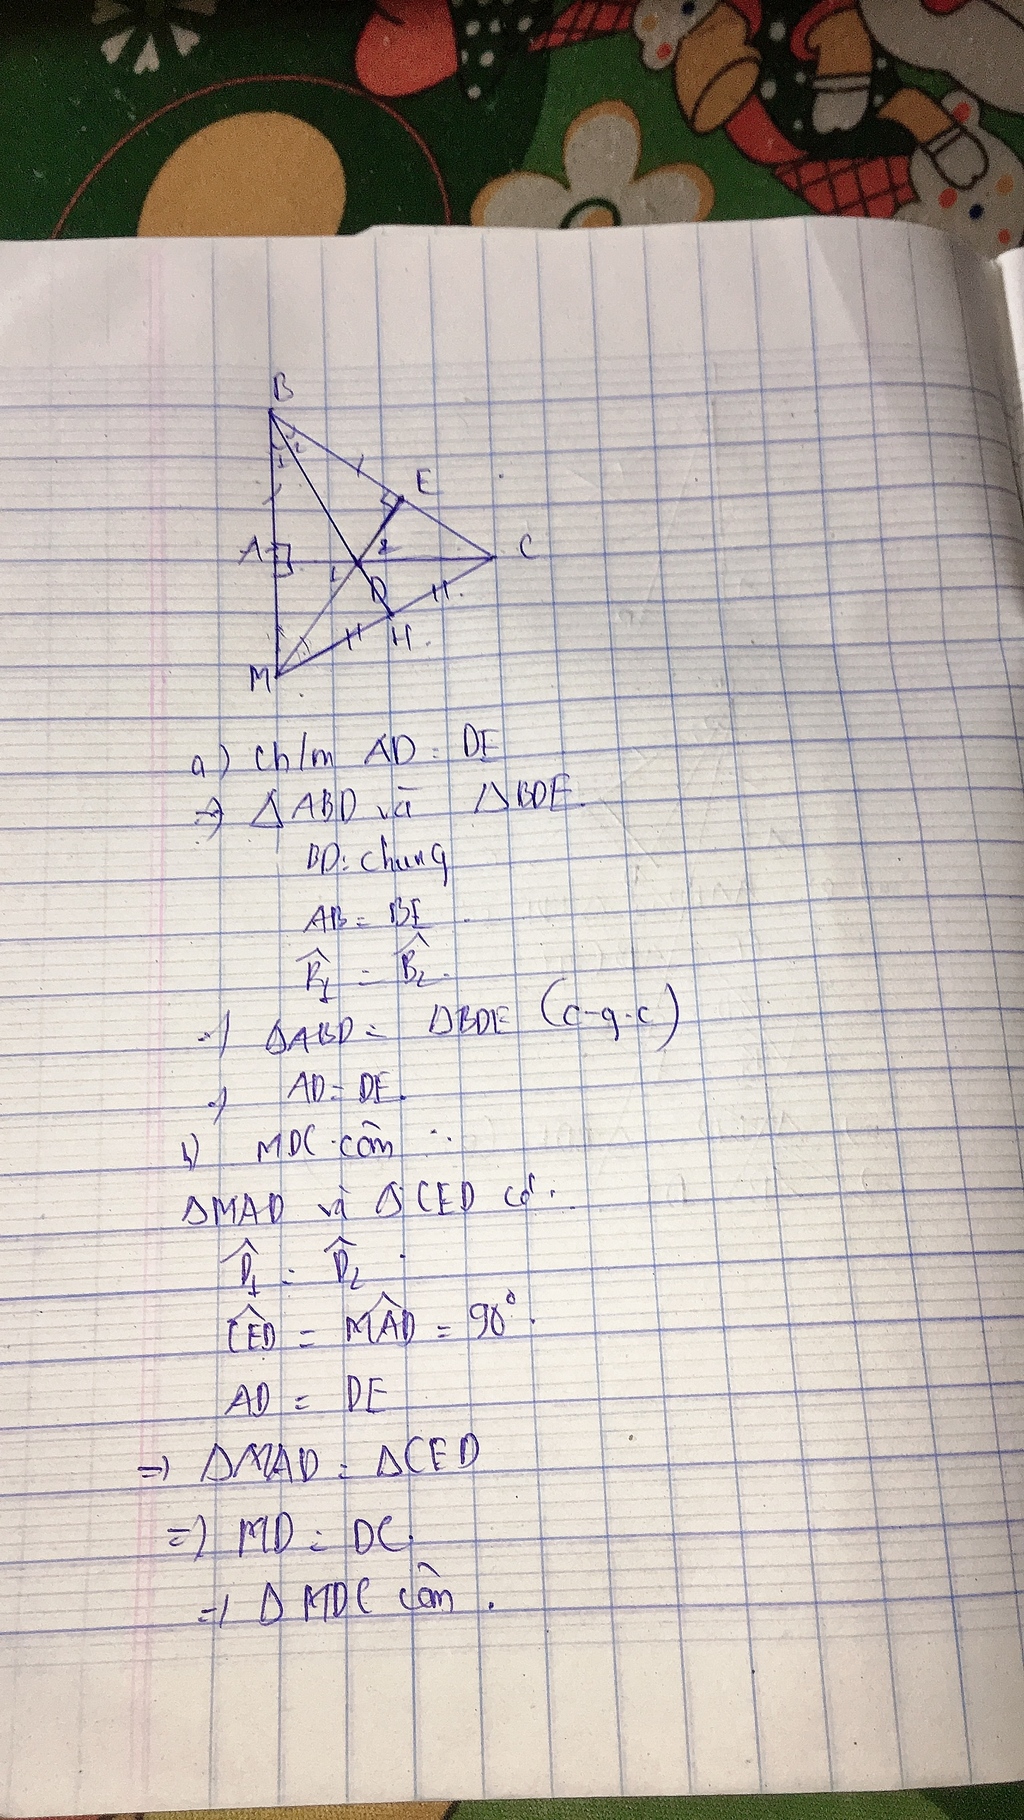 B
1 2
E
A
2
C
1
D
H
M
a) Ch/m AD = DE
=> ΔABD và ΔBDE.
BD: chung
AB = BE
B̂₁ = B̂₂.
=> ΔABD = ΔBDE (c-g-c)
=> AD = DE.
b) MDC cân :
ΔMAD và ΔCED có:
D̂₁ = D̂₂
CÊD = MÂD = 90°.
AD = DE
=> ΔMAD = ΔCED
=> MD = DC.
=> ΔMDC cân.